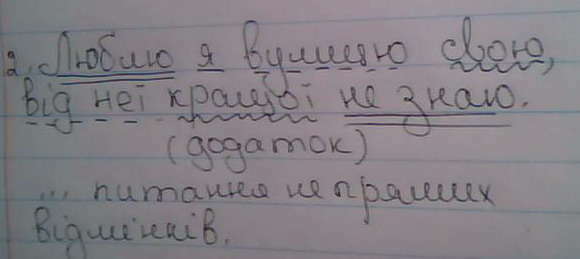 2. Люблю я вулицю свою,
від неї кращої не знаю.
(додаток)
... питання непрямих
відмінків.